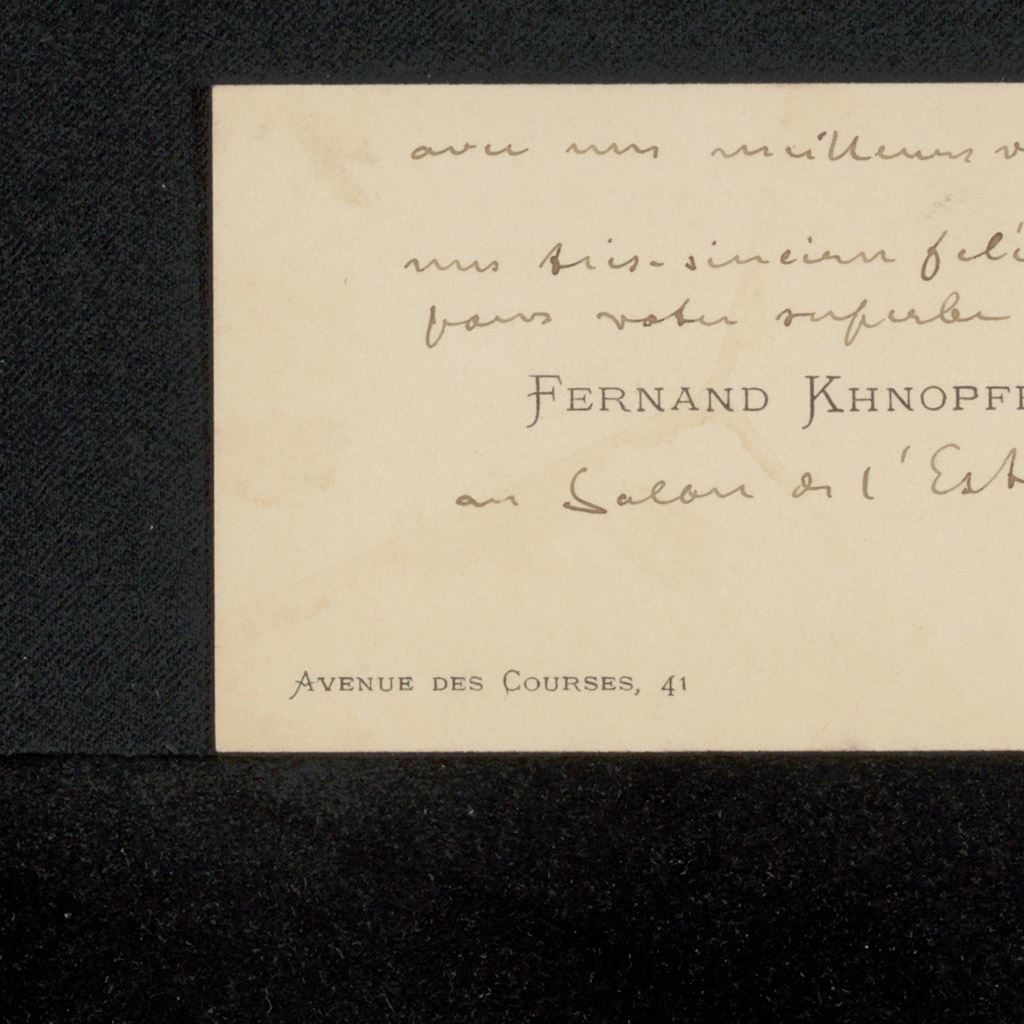 avec mes meilleurs v
mes très-sincères féli
pour votre superbe
FERNAND KHNOPFF
au Salon de l'Est
AVENUE DES COURSES, 41